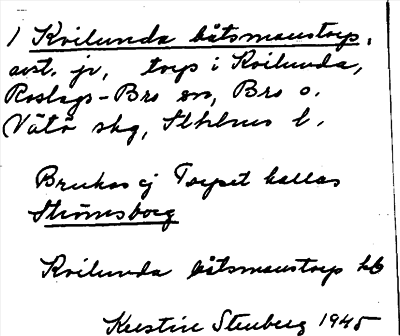 1 Kvilunda båtsmanstorp,
avst. jo, torp i Kvilunda,
Roslags-Bro sn, Bro o.
Vätö skg, Sthlms l.
Brukas ej Torpet kallas
Strömsborg
Kvilunda båtsmanstorp hb
Kerstin Stenberg 1945